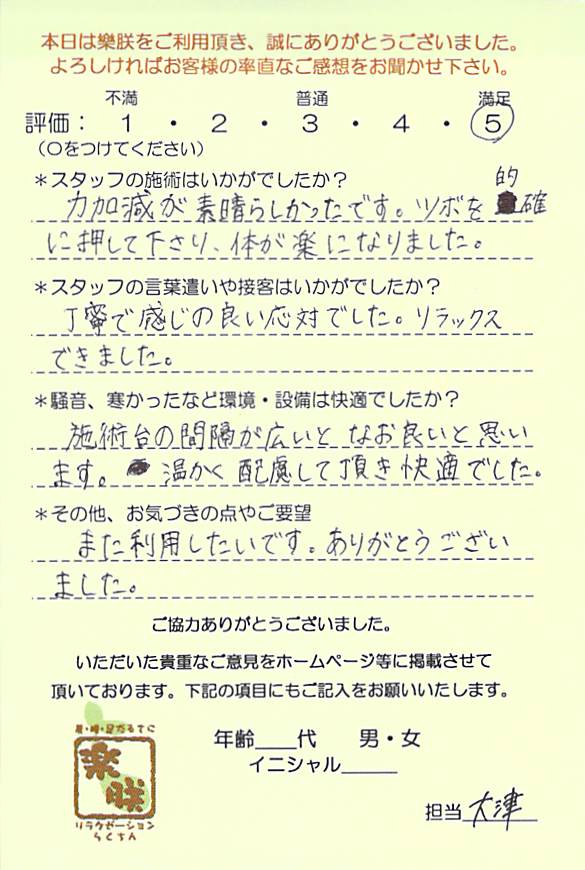 本日は樂朕をご利用頂き、誠にありがとうございました。
よろしければお客様の率直なご感想をお聞かせ下さい。
不満 普通 満足
評価： 1 ・ 2 ・ 3 ・ 4 ・ 5
（○をつけてください）
＊スタッフの施術はいかがでしたか？
力加減が素晴らしかったです。ツボを的確
に押して下さり、体が楽になりました。
＊スタッフの言葉遣いや接客はいかがでしたか？
丁寧で感じの良い応対でした。リラックス
できました。
＊騒音、寒かったなど環境・設備は快適でしたか？
施術台の間隔が広いと なお良いと思い
ます。 温かく配慮して頂き快適でした。
＊その他、お気づきの点やご要望
また利用したいです。ありがとうござい
ました。
ご協力ありがとうございました。
いただいた貴重なご意見をホームページ等に掲載させて
頂いております。下記の項目にもご記入をお願いいたします。
年齢＿＿代 男・女
イニシャル＿＿＿
楽朕
リラクゼーション
らくちん
担当 大津